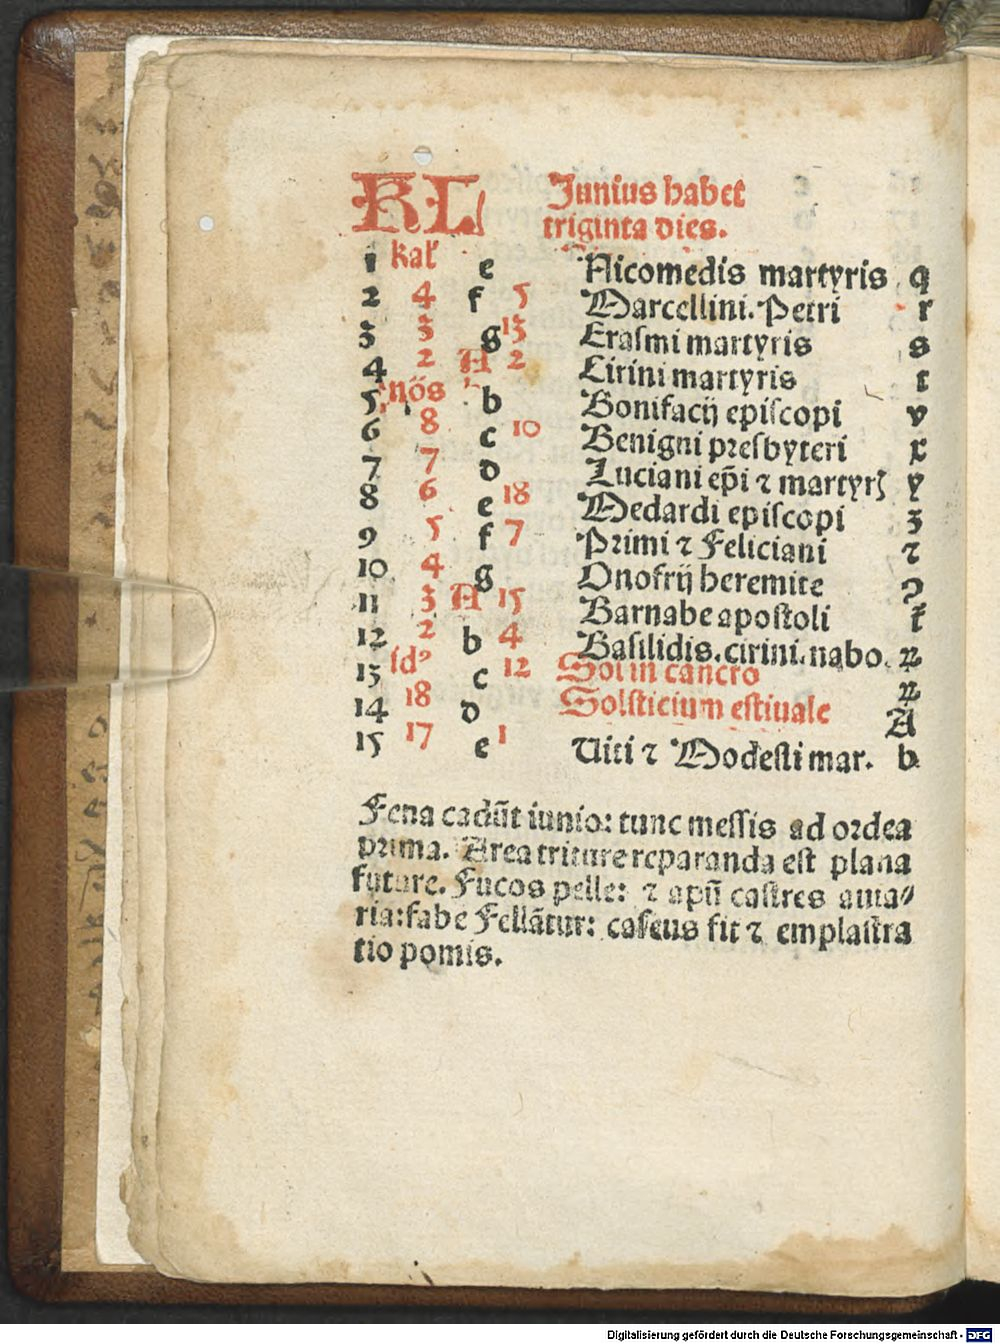 KL Junius habet
triginta dies.
1 kal' e Nicomedis martyris q
2 4 f 5 Marcellini. Petri r
3 3 g 13 Erasmi martyris s
4 2 A 2 Cirini martyris t
5 nōs b Bonifacij episcopi v
6 8 c 10 Benigni presbyteri x
7 7 d Luciani ep̄i ⁊ martyrꝭ y
8 6 e 18 Medardi episcopi z
9 5 f 7 Primi ⁊ Feliciani ⁊
10 4 g Onofrij heremite ꝯ
11 3 A 15 Barnabe apostoli
12 2 b 4 Basilidis. cirini. nabo.
13 id⁹ c 12 Sol in cancro
14 18 d Solsticium estiuale A
15 17 e 1 Uiti ⁊ Modesti mar. b
Fena cadūt iunio: tunc messis ad ordea
prima. Area triture reparanda est plana
future. Fucos pelle: ⁊ apū castres auia⸗
ria: fabe Fellātur: caseus fit ⁊ emplastra
tio pomis.
Digitalisierung gefördert durch die Deutsche Forschungsgemeinschaft - DFG